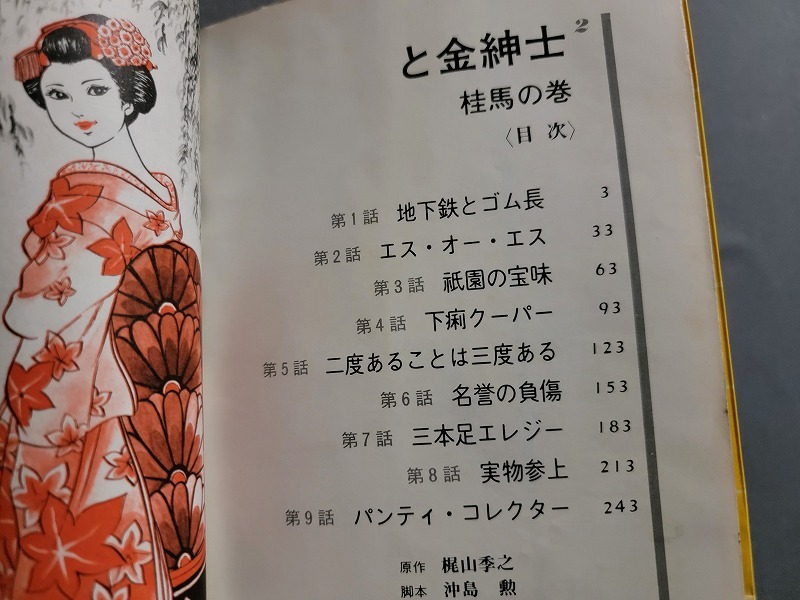 と金紳士2
桂馬の巻
〈目次〉
第1話 地下鉄とゴム長 3
第2話 エス・オー・エス 33
第3話 祇園の宝味 63
第4話 下痢クーパー 93
第5話 二度あることは三度ある 123
第6話 名誉の負傷 153
第7話 三本足エレジー 183
第8話 実物参上 213
第9話 パンティ・コレクター 243
原作 梶山季之
脚本 沖島 勲